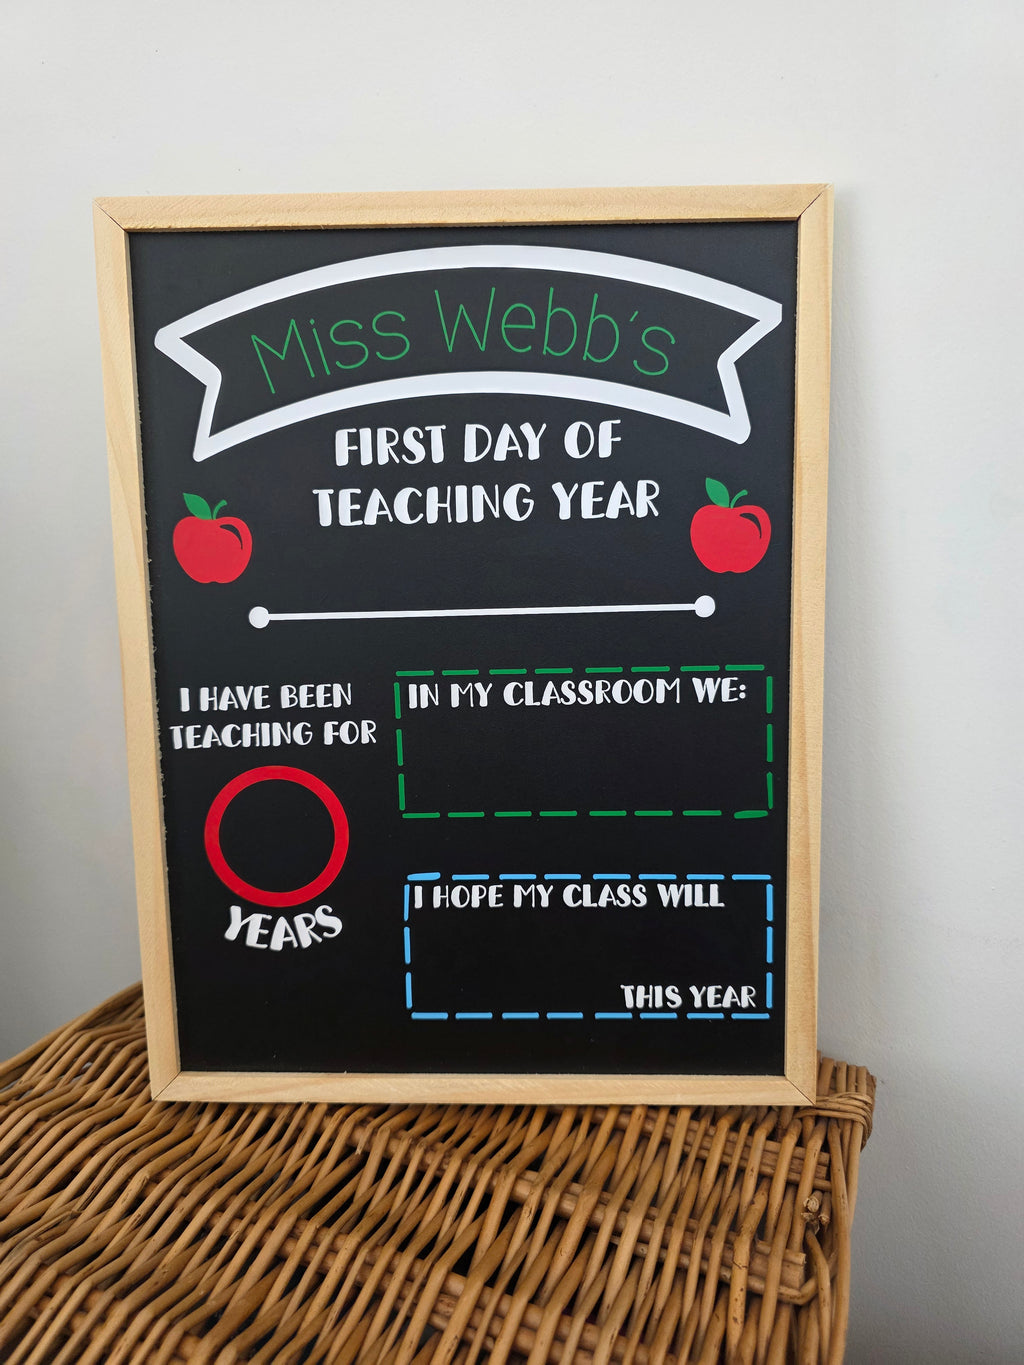 Miss Webb's
FIRST DAY OF
TEACHING YEAR
I HAVE BEEN
TEACHING FOR
YEARS
IN MY CLASSROOM WE:
I HOPE MY CLASS WILL
THIS YEAR